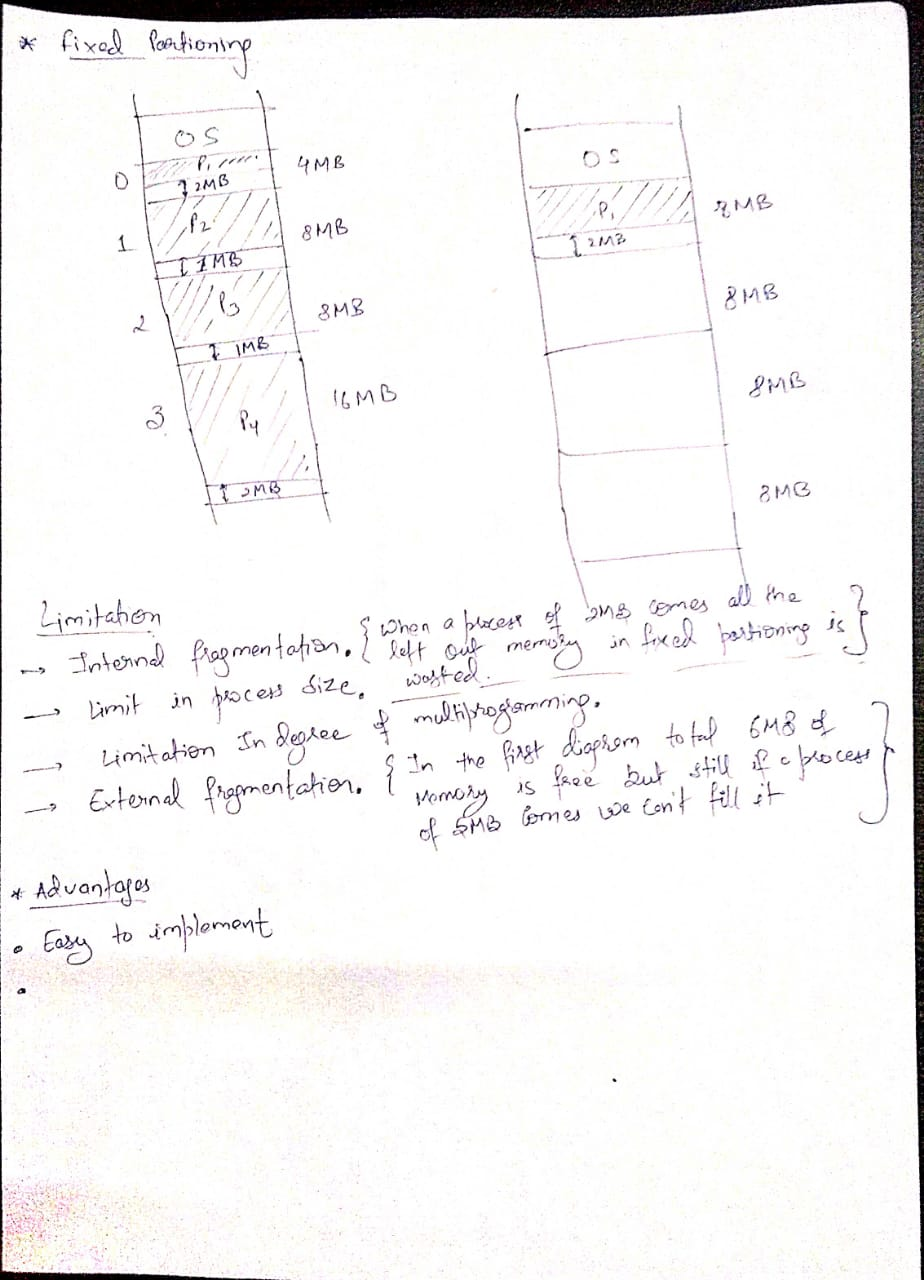 * Fixed Partioning
OS
0 P1 4MB
2MB
1 P2 8MB
1MB
2 P3 8MB
1MB
3 P4 16MB
2MB
OS
P1 8MB
2MB
8MB
8MB
8MB
Limitation
→ Internal fragmentation. { When a process of 2MB comes all the
left out memory in fixed partioning is
wasted. }
→ Limit in process size.
→ Limitation In degree of multiprogramming.
→ External fragmentation. { In the first diagram total 6MB of
Memory is free but still if a process
of 5MB comes we can't fill it }
* Advantages
• Easy to implement
•